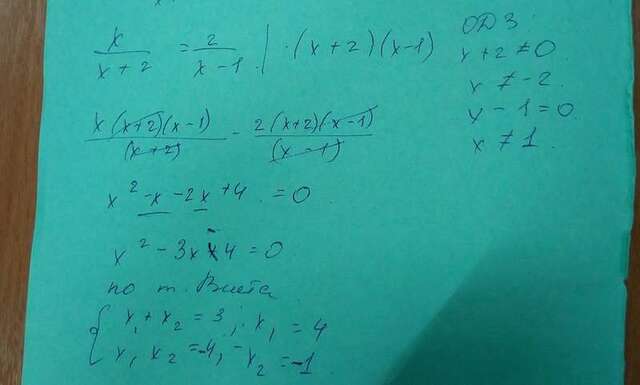 x/(x+2) = 2/(x-1) | ·(x+2)(x-1)
ОДЗ:
x+2≠0
x≠-2
x-1=0
x≠1.
x(x+2)(x-1)/(x+2) - 2(x+2)(x-1)/(x-1)
x²-x-2x+4 =0
x²-3x-4=0
по т. Виета
{ x₁+x₂=3; x₁=4
x₁x₂=-4, x₂=-1